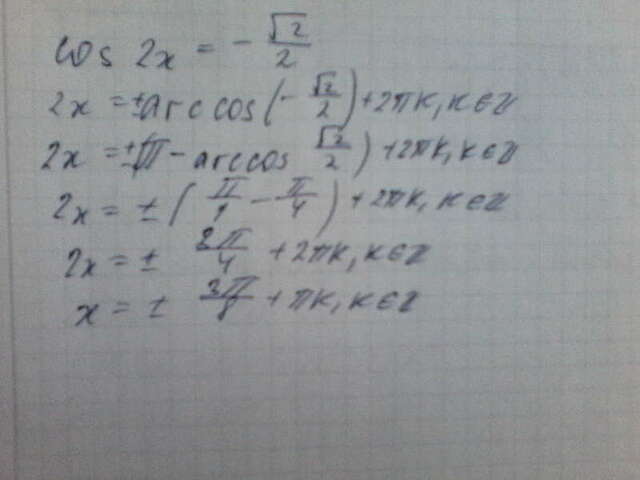 cos 2x = - √2/2
2x = ±arccos(- √2/2) + 2πk, k ∈ Z
2x = ±(π - arccos √2/2) + 2πk, k ∈ Z
2x = ± (π/1 - π/4) + 2πk, k ∈ Z
2x = ± 3π/4 + 2πk, k ∈ Z
x = ± 3π/8 + πk, k ∈ Z